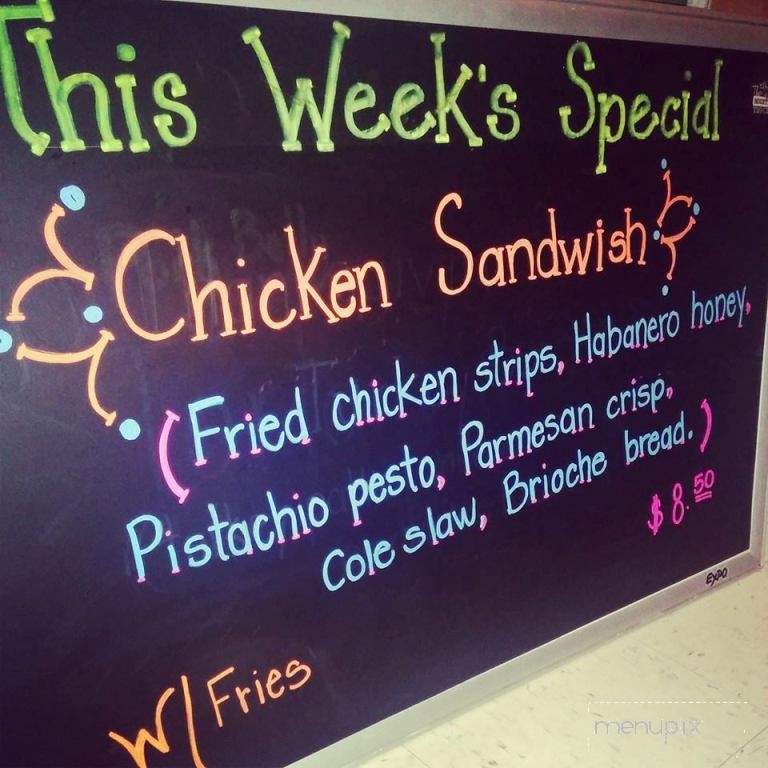 This Week's Special
Chicken Sandwish
(Fried chicken strips, Habanero honey,
Pistachio pesto, Parmesan crisp,
Cole slaw, Brioche bread.)
$8.50
W/ Fries
EXPO
menupix